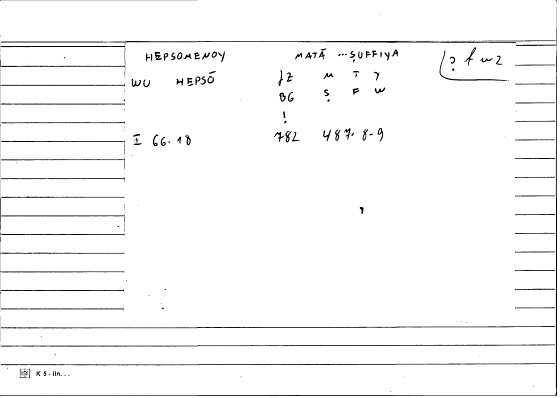 HEPSOMENOY MATĀ ... ṢUFFIYA ? f w z
WU HEPSŌ ƷZ M T Y
BG Ṣ F W
!
I 66.18 782 487.8-9
K 5 - lin...